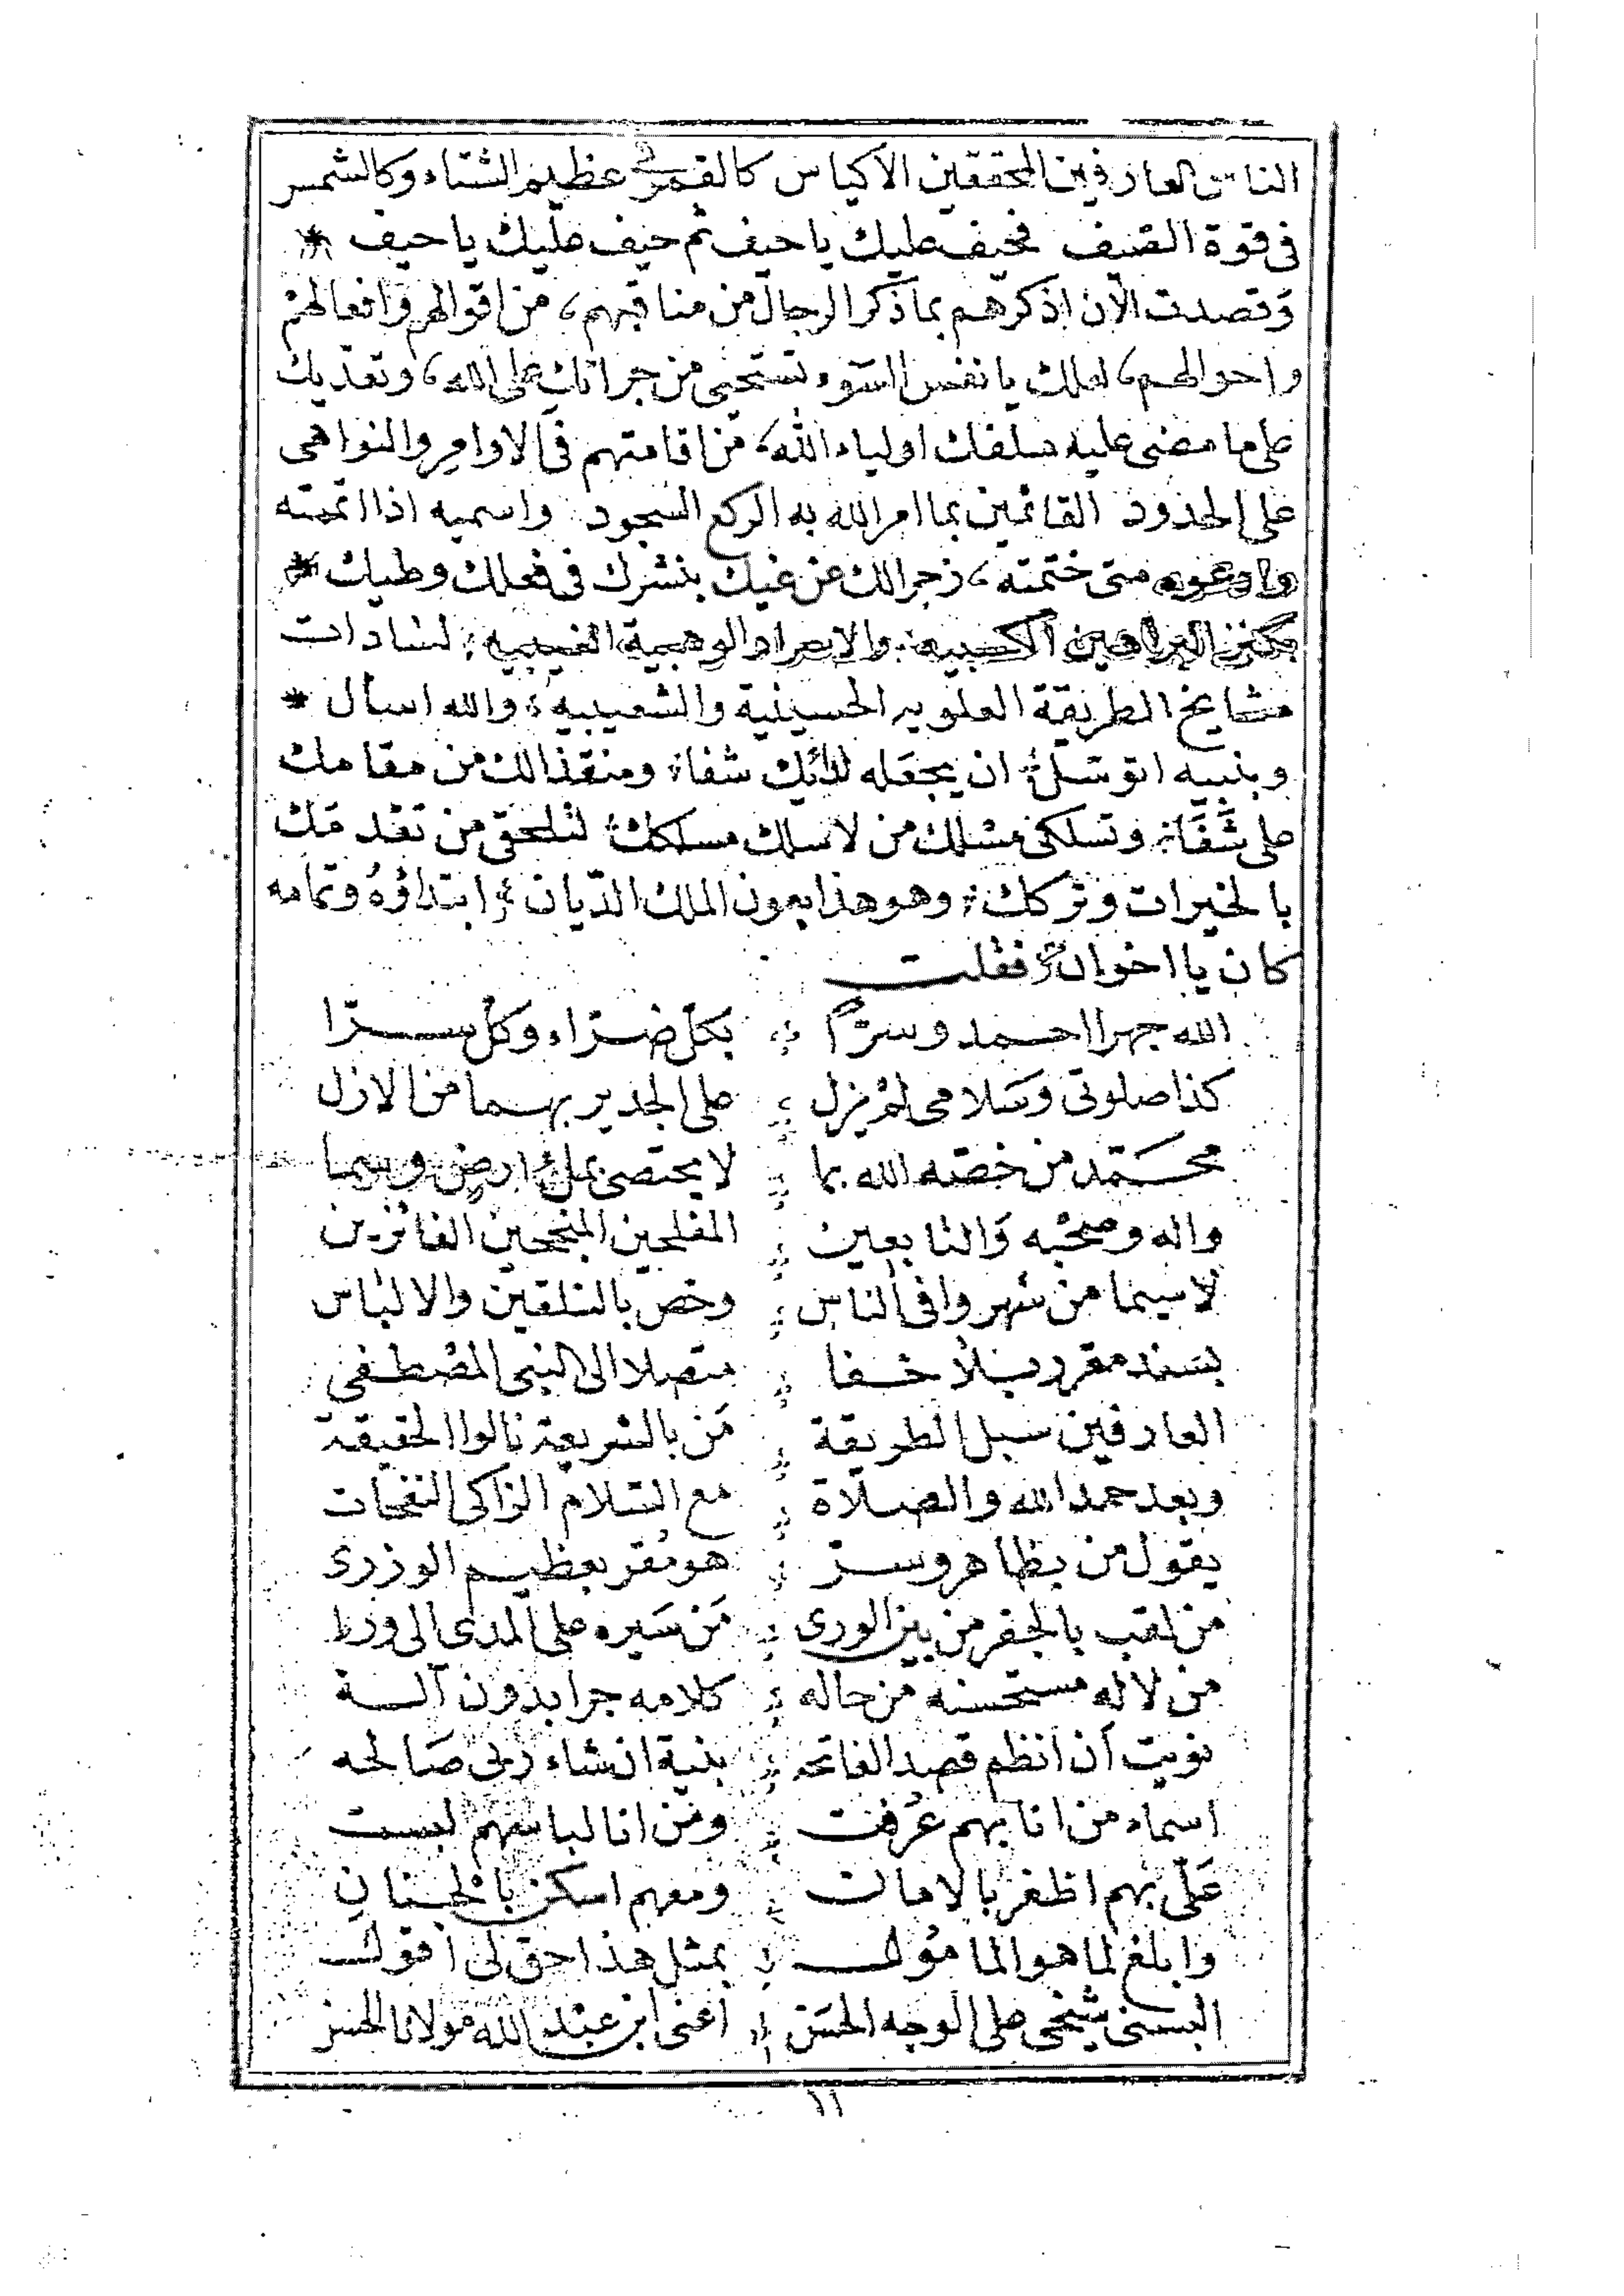 الناس العارفين المحققين الاكياس كالقمر في عظيم الشتاء وكالشمس
في قوة الصيف فحيف عليك يا حيف ثم حيف عليك يا حيف *
وقصدت الآن اذكرهم بما ذكر الرجال من مناقبهم، من اقوالهم وافعالهم
واحوالهم، لعلك يا نفس السوء تستحيي من جرأتك على الله، وتعديك
على ما مضى عليه سلفك اولياء الله، من اقامتهم في الاوامر والنواهي
على الحدود القائمين بما امر الله به الركع السجود واسميه اذا اتممته
متى ختمته، زجرا لك عن غيك بنشرك في فعلك وطيك *
بكنز البراهين الكسبيه والاسرار الوهبية الغيبيه لسادات
مشايخ الطريقة العلويه الحسينية والشعيبيه والله اسأل *
وبنبيه اتوسل ان يجعله لدائك شفاء ومنقذا لك من مقامك
على شفاء وتسلكي مسلك من لا سلك مسلكك لتلحق من تقدمك
بالخيرات وتركك وهو هذا بعون الملك الديان ابتداؤه وتمامه
كان يا اخوان فقلت
الله جهرا احمد وسرا بكل ضراء وكل سرا
كذا صلوتي وسلامي لم يزل على الجدير بهما من الازل
محمد من خصه الله بما لا يحتصى بملء ارض وسما
واله وصحبه والتابعين المفلحين المنجحين الفائزين
لا سيما من شهروا في الناس وخص بالتلقين والالباس
بسند مقرر بلا خفا متصلا الى النبي المصطفى
العارفين سبل الطريقة من بالشريعة نالوا الحقيقة
وبعد حمد الله والصلاة مع السلام الزاكي النفحات
يقول من بظاهر وسر هو مقر بعظيم الوزر
من لقب بالجفر من بين الورى من سيره على المدى الى ورا
من لا له مستحسنه من حاله كلامه جرا بدون آلة
نويت ان انظم قصد الفاتحه بنية ان شاء ربي صالحه
اسماء من انا بهم عرفت ومن انا لباسهم لبست
علي بهم اظفر بالامان ومعهم اسكن بالجنان
وابلغ لما هو المأمول بمثل هذا حق لي اقول
البسني شيخي على الوجه الحسن اعني ابن عبد الله مولانا الحسن
١١